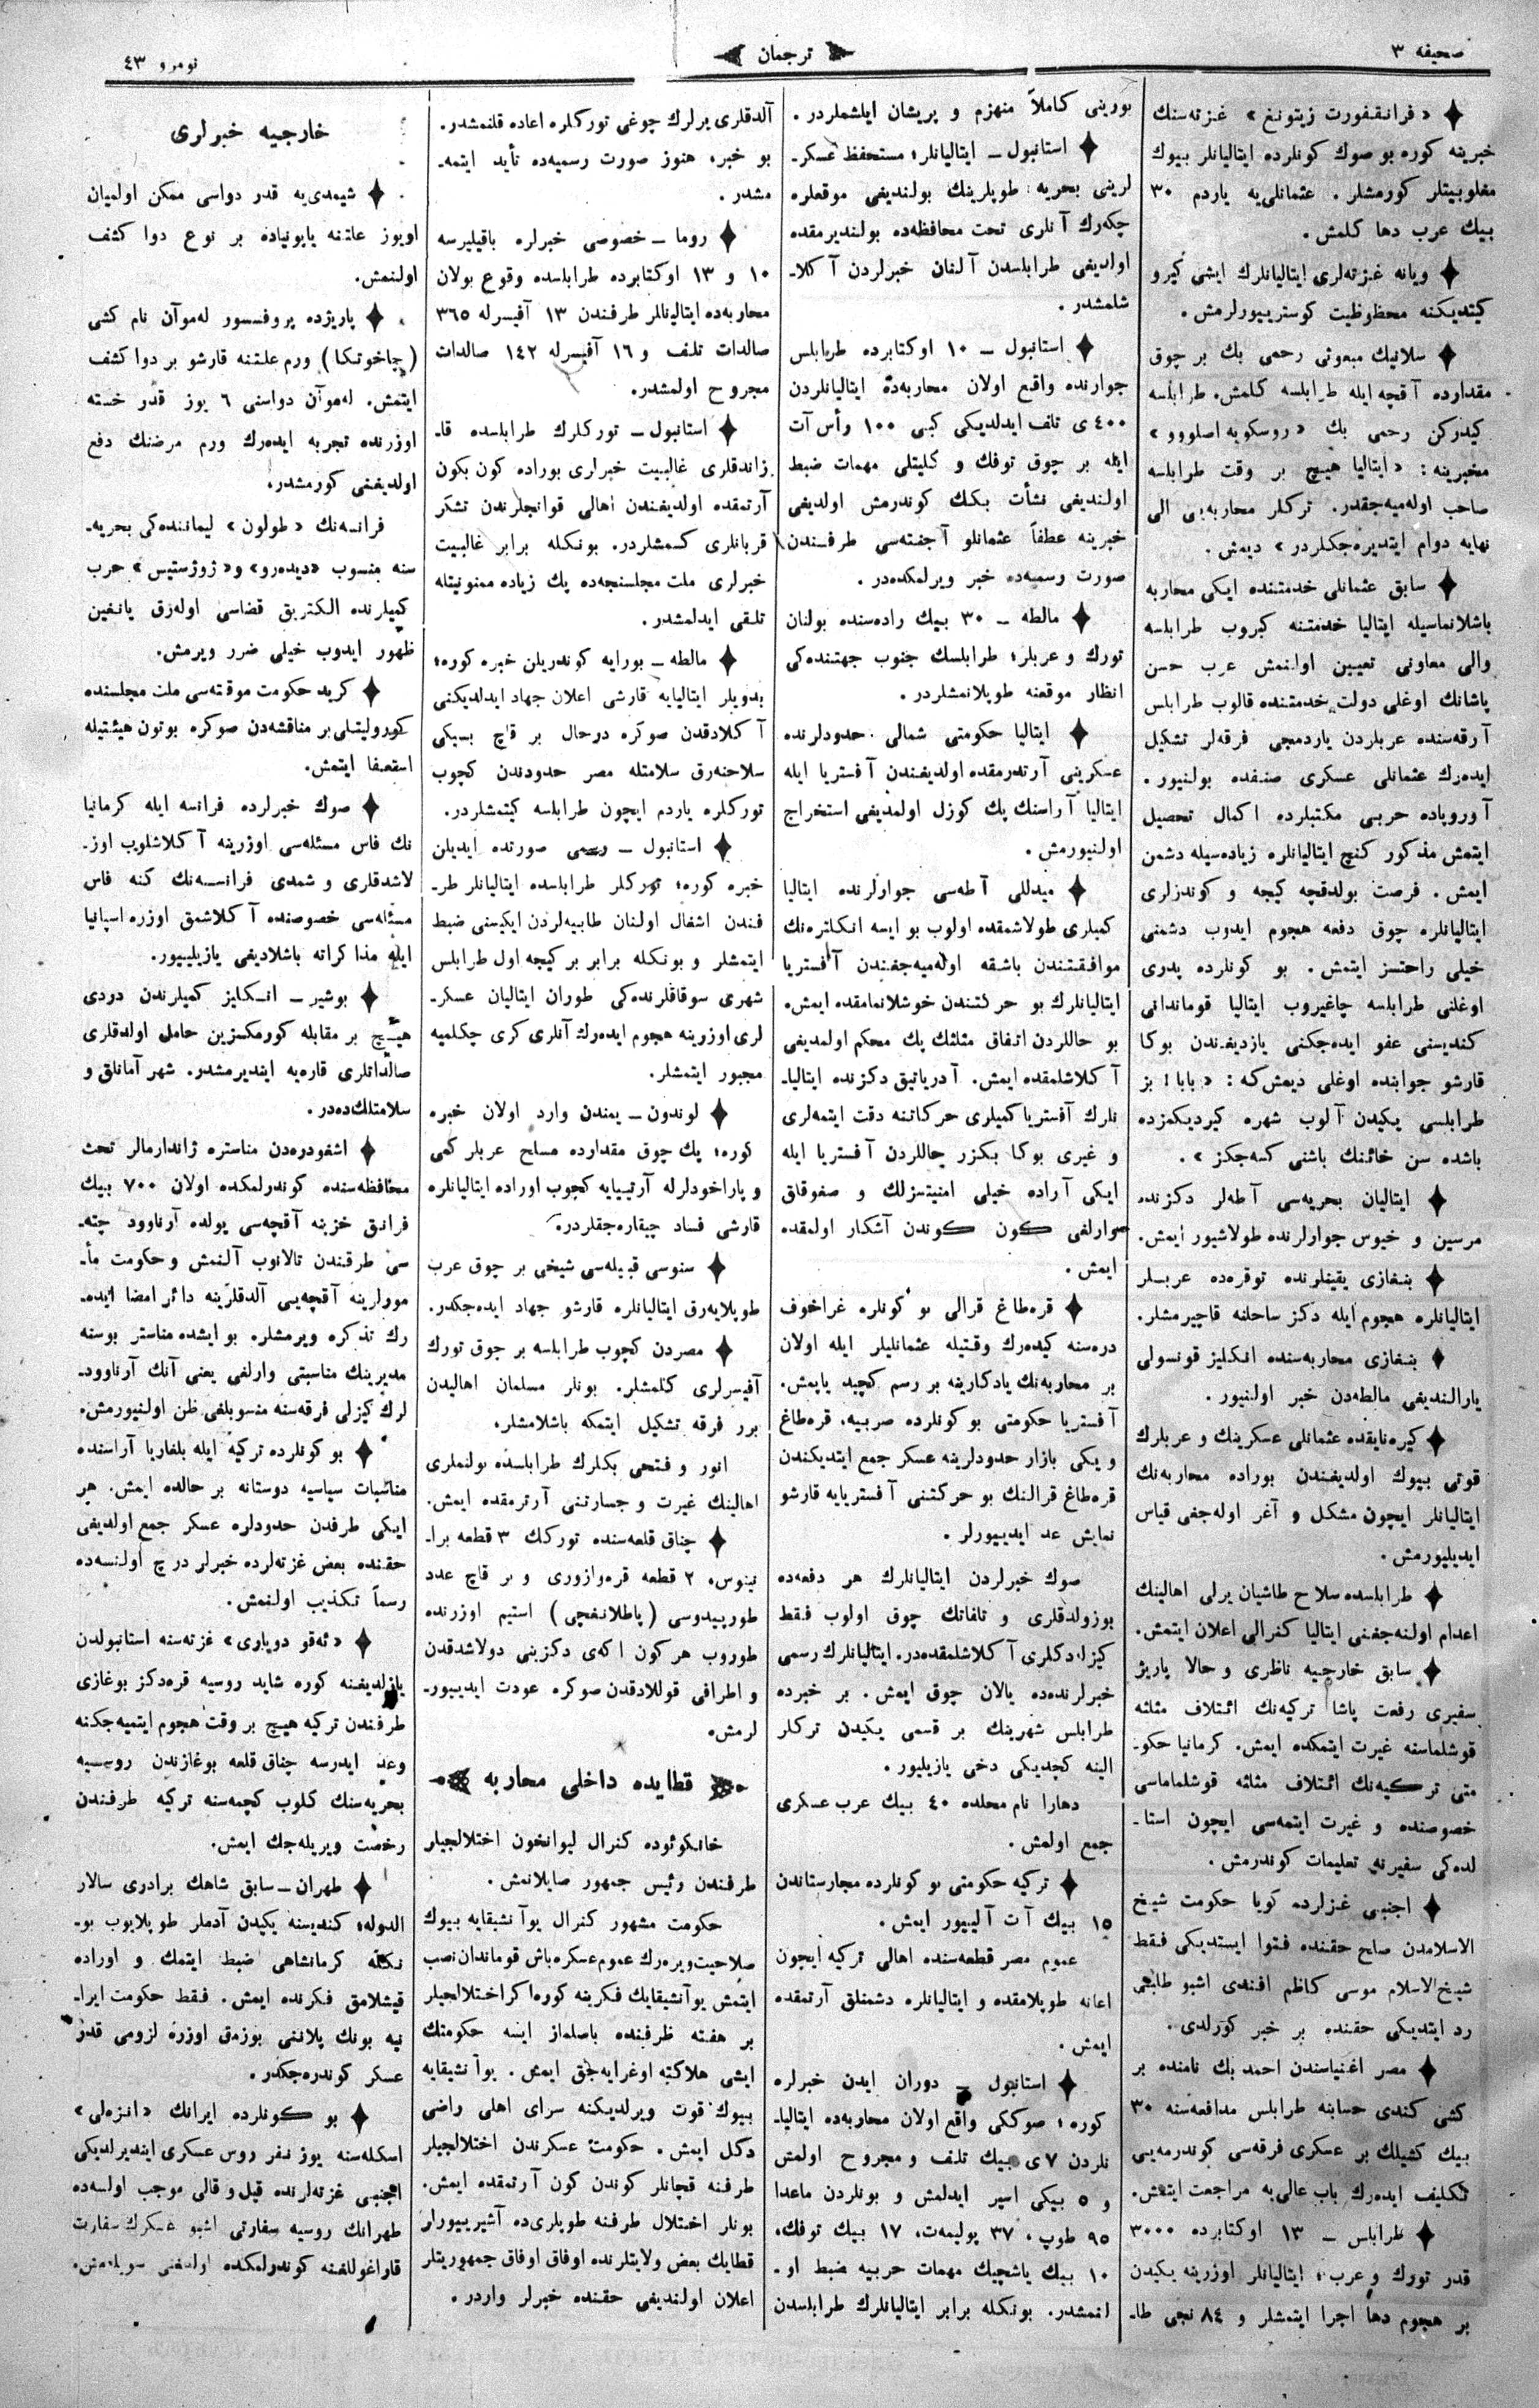 صحیفه ۳
ترجمان
نومرو ٤۳
« فرانقفورت زیتونغ » غزته‌سنك
خبرینه كوره بو صوك كونلرده ایتالیانلر بیوك
مغلوبیتلر كورمشلر . عثمانلی‌یه یاردم ۳۰
بیك عرب دها كلمش .
ویانه غزته‌لری ایتالیانلرك ایشی كیرو
كیتدیكنه محظوظیت كوستریورلرمش .
سلانیك مبعوثی رحمی بك بر چوق
مقدارده آقچه ایله طرابلسه كلمش. طرابلسه
كیدركن رحمی بك « روسكویه اصلووو »
مخبرینه : « ایتالیا هیچ بر وقت طرابلسه
صاحب اوله‌میه‌جقدر. تركلر محاربه‌یی الی
نهایه دوام ایتدیره‌جكلردر » دیمش .
سابق عثمانلی خدمتنده ایكی محاربه
باشلانماسیله ایتالیا خدمتنه كیروب طرابلسه
والی معاونی تعیین اولنمش عرب حسن
پاشانك اوغلی دولت خدمتنده قالوب طرابلس
آرقه‌سنده عربلردن یاردمجی فرقه‌لر تشكیل
ایده‌رك عثمانلی عسكری صنفده بولنیور .
آوروپاده حربی مكتبلرده اكمال تحصیل
ایتمش مذكور كنج ایتالیانلره زیاده‌سیله دشمن
ایمش . فرصت بولدقچه كیجه و كوندزلری
ایتالیانلره چوق دفعه هجوم ایدوب دشمنی
خیلی راحتسز ایتمش . بو كونلرده پدری
اوغلنی طرابلسه چاغیروب ایتالیا قوماندانی
كندیسنی عفو ایده‌جكنی یازدیغندن بوكا
قارشو جوابنده اوغلی دیمش‌كه : « بابا ! بز
طرابلسی یكیدن آلوب شهره كیردیكمزده
باشده سن خائنك باشنی كسه‌جكز » .
ایتالیان بحریه‌سی آطه‌لر دكزنده
مرسین و خیوس جوارلرنده طولاشیور ایمش.
بنغازی یقینلرنده توقره‌ده عربلر
ایتالیانلره هجوم ایله دكز ساحلنه قاچیرمشلر.
بنغازی محاربه‌سنده انكلیز قونسولی
یارالندیغی مالطه‌دن خبر اولنیور .
كیره‌نایقده عثمانلی عسكرینك و عربلرك
قوتی بیوك اولدیغندن بوراده محاربه‌نك
ایتالیانلر ایچون مشكل و آغر اوله‌جغی قیاس
ایدیلیورمش .
طرابلسده سلاح طاشیان یرلی اهالینك
اعدام اولنه‌جغنی ایتالیا كنرالی اعلان ایتمش.
سابق خارجیه ناظری و حالا پاریژ
سفیری رفعت پاشا تركیه‌نك ائتلاف مثلثه
قوشلماسنه غیرت ایتمكده ایمش. كرمانیا حكو-
متی تركیه‌نك ائتلاف مثلثه قوشلماماسی
خصوصنده و غیرت ایتمه‌سی ایچون استا-
لده‌كی سفیرنه تعلیمات كوندرمش .
اجنبی غزلرده كویا حكومت شیخ
الاسلامدن صلح حقنده فتوا ایستدیكی فقط
شیخ‌الاسلام موسی كاظم افندی اشبو طلبی
رد ایتدیكی حقنده بر خبر كورلدی .
مصر اغنیاسندن احمد بك نامنده بر
كشی كندی حسابنه طرابلس مدافعه‌سنه ۳۰
بیك كشیلك بر عسكری فرقه‌سی كوندرمه‌یی
تكلیف ایده‌رك باب عالی‌یه مراجعت ایتمش.
طرابلس – ۱۳ اوكتابرده ۳۰۰۰
قدر تورك و عرب ؛ ایتالیانلر اوزرینه یكیدن
بر هجوم دها اجرا ایتمشلر و ۸٤ نجی طا-
بورینی كاملاً منهزم و پریشان ایلشملردر .
استانبول – ایتالیانلر؛ مستحفظ عسكر-
لرینی بحریه طوپلرینك بولندیغی موقعلره
چكه‌رك آنلری تحت محافظه‌ده بولندیرمقده
اولدیغی طرابلسدن آلنان خبرلردن آكلا-
شلمشدر .
استانبول – ۱۰ اوكتابرده طرابلس
جوارنده واقع اولان محاربه‌ده ایتالیانلردن
٤۰۰ ی تلف ایدلدیكی كبی ۱۰۰ رأس آت
ایله بر چوق توفك و كلیتلی مهمات ضبط
اولندیغی نشأت بكك كوندرمش اولدیغی
خبرینه عطفاً عثمانلو آجنته‌سی طرفندن
صورت رسمیه‌ده خبر ویرلمكده‌در .
مالطه – ۳۰ بیك راده‌سنده بولنان
تورك و عربلر؛ طرابلسك جنوب جهتنده‌كی
انظار موقعنه طوپلانمشلردر .
ایتالیا حكومتی شمالی حدودلرنده
عسكرینی آرتدرمقده اولدیغندن آفستریا ایله
ایتالیا آراسنك پك كوزل اولمدیغی استخراج
اولنیورمش .
میدللی آطه‌سی جوارلرنده ایتالیا
كمیلری طولاشمقده اولوب بو ایسه انكلتره‌نك
موافقتندن باشقه اوله‌میه‌جغندن آفستریا
ایتالیانلرك بو حركتندن خوشلانمامقده ایمش.
بو حاللردن اتفاق مثلثك پك محكم اولمدیغی
آكلاشلمقده ایمش. آدریاتیق دكزنده ایتالیا-
نلرك آفستریا كمیلری حركاتنه دقت ایتمه‌لری
و غیری بوكا بكزر حاللردن آفستریا ایله
ایكی آراده خیلی امنیتسزلك و صغوقلق
وارلغی كون كوندن آشكار اولمقده
ایمش .
قره‌طاغ قرالی بو كونلره غراخوف
دره‌سنه كیده‌رك وقتیله عثمانلیلر ایله اولان
بر محاربه‌نك یادكارینه بر رسم كچید یاپمش.
آفستریا حكومتی بو كونلرده صربیه، قره‌طاغ
و یكی بازار حدودلرینه عسكر جمع ایتدیكندن
قره‌طاغ قرالنك بو حركتنی آفستریایه قارشو
نمایش عد ایدییورلر .
صوك خبرلردن ایتالیانلرك هر دفعه‌ده
بوزولدقلری و تلفاتك چوق اولوب فقط
كیزلدكلری آكلاشلمقده‌در. ایتالیانلرك رسمی
خبرلرنده‌ده یالان چوق ایمش . بر خبرده
طرابلس شهرینك بر قسمی یكیدن تركلر
الینه كچدیكی دخی یازیلیور .
دهارا نام محلده ٤۰ بیك عرب عسكری
جمع اولمش .
تركیه حكومتی بو كونلرده مجارستاندن
۱۵ بیك آت آلییور ایمش .
عموم مصر قطعه‌سنده اهالی تركیه ایچون
اعانه طوپلامقده و ایتالیانلره دشمنلق آرتمقده
ایمش .
استانبول – دوران ایدن خبرلره
كوره ؛ صوككی واقع اولان محاربه‌ده ایتالیا-
نلردن ۷ ی بیك تلف و مجروح اولمش
و ۵ بیكی اسیر ایدلمش و بونلردن ماعدا
۹۵ طوپ، ۳۷ پولیمه‌ت، ۱۷ بیك توفك،
۱۰ بیك یاشچیك مهمات حربیه ضبط او-
لنمشدر. بونكله برابر ایتالیانلرك طرابلسدن
آلدقلری یرلرك چوغی توركلره اعاده قلنمشدر.
بو خبر، هنوز صورت رسمیه‌ده تأید ایتمه-
مشدر .
روما – خصوصی خبرلره باقیلیرسه
۱۰ و ۱۳ اوكتابرده طرابلسده وقوع بولان
محاربه‌ده ایتالیانلر طرفندن ۱۳ آفیسرله ۳٦۵
صالدات تلف و ۱٦ آفیسرله ۱٤۲ صالدات
مجروح اولمشدر.
استانبول – توركلرك طرابلسده قا-
زاندقلری غالبیت خبرلری بوراده كون بكون
آرتمقده اولدیغندن اهالی قوانجلرندن تشكر
قربانلری كسمشلردر. بونكله برابر غالبیت
خبرلری ملت مجلسنجه‌ده پك زیاده ممنونیتله
تلقی ایدلمشدر .
مالطه – بورایه كوندریلن خبره كوره؛
بدویلر ایتالیایه قارشی اعلان جهاد ایدلدیكنی
آكلادقدن صوكره درحال بر قاچ بیكی
سلاحنه‌رق سلامتله مصر حدودندن كچوب
توركلره یاردم ایچون طرابلسه كیتمشلردر.
استانبول – رسمی صورتده ایدیلن
خبره كوره؛ توركلر طرابلسده ایتالیانلر طر-
فندن اشغال اولنان طابیه‌لردن ایكیسنی ضبط
ایتمشلر و بونكله برابر بر كیجه اول طرابلس
شهری سوقاقلرنده‌كی طوران ایتالیان عسكر-
لری اوزرینه هجوم ایده‌رك آنلری كری چكلمیه
مجبور ایتمشلر.
لوندون – یمندن وارد اولان خبره
كوره؛ پك چوق مقدارده مسلح عربلر كمی
و پاراخودلرله آرتیپایه كچوب اوراده ایتالیانلره
قارشی فساد چیقاره‌جقلردر.
سنوسی قبیله‌سی شیخی بر چوق عرب
طوپلایه‌رق ایتالیانلره قارشو جهاد ایده‌جكدر.
مصردن كچوب طرابلسه بر چوق تورك
آفیسرلری كلمشلر. بونلر مسلمان اهالیدن
برر فرقه تشكیل ایتمكه باشلامشلر.
انور و فتحی بكلرك طرابلسده بولنملری
اهالینك غیرت و جسارتنی آرترمقده ایمش.
چناق قلعه‌سنده توركك ۳ قطعه برا-
نینوس، ۲ قطعه قره‌وازوری و بر قاچ عدد
طورپیدوسی ( پاطلانغچی ) استیم اوزرنده
طوروب هر كون اكه‌ی دكزینی دولاشدقدن
و اطرافی قوللادقدن صوكره عودت ایدییور-
لرمش.
قطایده داخلی محاربه
خانكوئوده كنرال لیوانخون اختلالجیلر
طرفندن رئیس جمهور صایلانمش .
حكومت مشهور كنرال یوآنشیقایه بیوك
صلاحیت ویره‌رك عموم عسكره باش قوماندان نصب
ایتمش یوآنشیقایك فكرینه كوره اكر اختلالجیلر
بر هفته ظرفنده باصلماز ایسه حكومتك
ایشی هلاكته اوغرایه‌جق ایمش . یوآنشیقایه
بیوك قوت ویرلدیكنه سرای اهلی راضی
دكل ایمش . حكومت عسكرندن اختلالجیلر
طرفنه قچانلر كوندن كون آرتمقده ایمش.
بونلر اختلال طرفنه طوپلری‌ده آشیرییورلر
قطایك بعض ولایتلرنده اوفاق اوفاق جمهوریتلر
اعلان اولندیغی حقنده خبرلر واردر .
خارجیه خبرلری
شیمدی‌یه قدر دواسی ممكن اولمیان
اویوز علتنه یاپونیاده بر نوع دوا كشف
اولنمش.
پاریژده پروفسسور له‌موآن نام كشی
(چاخوتكا) ورم علتنه قارشو بر دوا كشف
ایتمش. له‌موآن دواسنی ٦ یوز قدر خسته
اوزرنده تجربه ایده‌رك ورم مرضنك دفع
اولدیغنی كورمشدر.
فرانسه‌نك « طولون » لیماننده‌كی بحریه-
سنه منسوب «دیده‌رو» و « ژوژستیس » حرب
كمیلرنده الكتریق قضاسی اوله‌رق یانغین
ظهور ایدوب خیلی ضرر ویرمش.
كرید حكومت موقته‌سی ملت مجلسنده
كورولیتلی بر مناقشه‌دن صوكره بوتون هیئتیله
استعفا ایتمش.
صوك خبرلرده فرانسه ایله كرمانیا
نك فاس مسئله‌سی اوزرینه آكلاشلوب اوز-
لاشدقلری و شمدی فرانسه‌نك كنه فاس
مسئله‌سی خصوصنده آكلاشمق اوزره اسپانیا
ایله مذاكراته باشلادیغی یازیلییور.
بوشیر – انكلیز كمیلرندن دردی
هیچ بر مقابله كورمكسزین حامل اولدقلری
صالداتلری قاره‌یه ایندیرمشدر. شهر آمانلق و
سلامتلك‌ده‌در .
اشقودره‌دن مناستره ژاندارمالر تحت
محافظه‌سنده كوندرلمكده اولان ۷۰۰ بیك
فرانق خزینه آقچه‌سی یولده آرناوود چته-
سی طرفندن تالانوب آلنمش و حكومت مأ-
مورلرینه آقچه‌یی آلدقلرینه دائر امضا ایده-
رك تذكره ویرمشلر. بو ایشده مناستر بوسنه
مدیرینك مناسبتی وارلغی یعنی آنك آرناوود-
لرك كیزلی فرقه‌سنه منسوبلغی ظن اولنیورمش.
بو كونلرده تركیه ایله بلغاریا آراسنده
مناسبات سیاسیه دوستانه بر حالده ایمش. هر
ایكی طرفدن حدودلره عسكر جمع اولدیغی
حقنده بعض غزته‌لرده خبرلر درج اولنسه‌ده
رسماً تكذیب اولنمش.
« ئه‌قو دوپاری » غزته‌سنه استانبولدن
یازلدیغنه كوره شاید روسیه قره‌دكز بوغازی
طرفندن تركیه هیچ بر وقت هجوم ایتمیه‌جكنه
وعد ایدرسه چناق قلعه بوغازندن روسیه
بحریه‌سنك كلوب كچمه‌سنه تركیه طرفندن
رخصت ویریله‌جك ایمش.
طهران – سابق شاهك برادری سالار
الدوله؛ كندیسنه یكیدن آدملر طوپلایوب بو-
نكله كرمانشاهی ضبط ایتمك و اوراده
قیشلامق فكرنده ایمش. فقط حكومت ایرا-
نیه بونك پلاننی بوزمق اوزره لزومی قدر
عسكر كوندره‌جكدر .
بو كونلرده ایرانك « انزه‌لی »
اسكله‌سنه یوز نفر روس عسكری ایندیرلدیكی
اجنبی غزته‌لرنده قیل و قالی موجب اولسه‌ده
طهرانك روسیه سفارتی اشبو عسكرك سفارت
قاراغوللغنه كوندرلمكده اولدیغنی سویلمش.